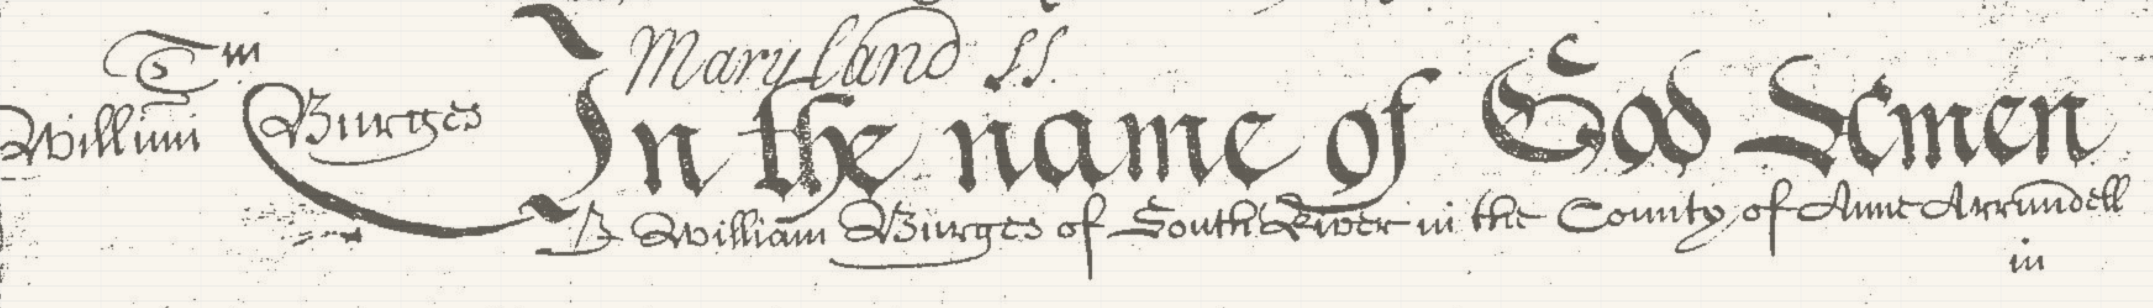 Tm
Maryland SS.
Willimi Burges
In the name of God Amen
I William Burges of South River in the County of Anne Arrundell
in